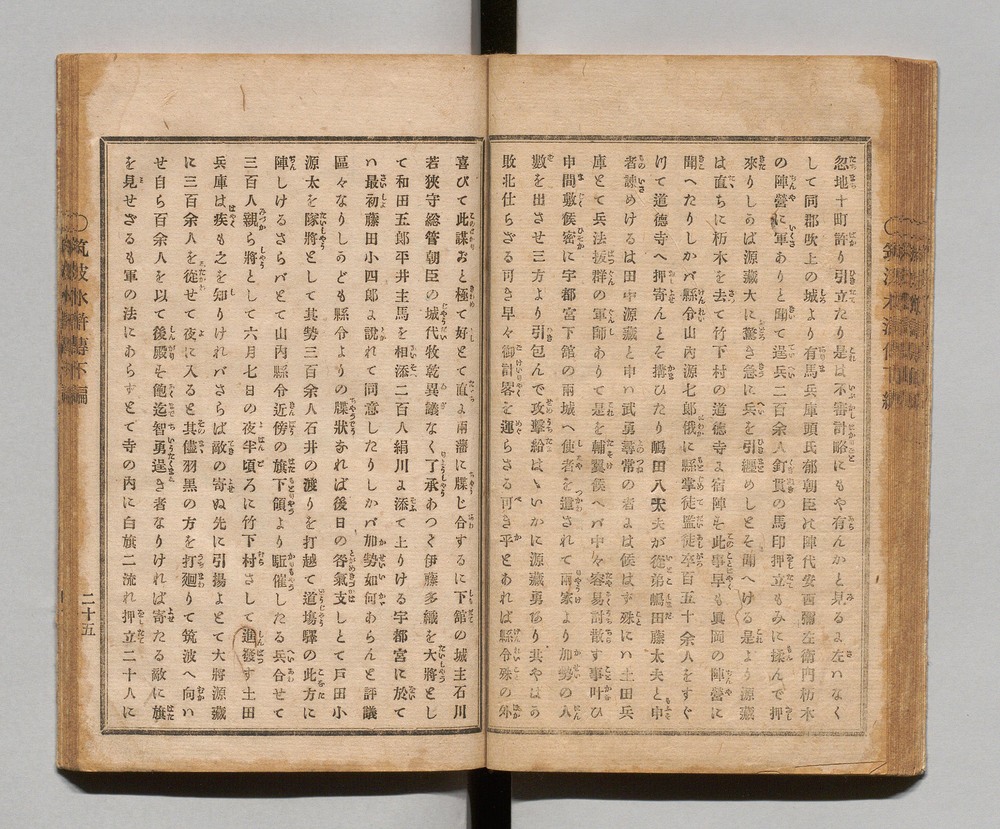 忽地十町許り引立たり是は不審計略にもや有んかと見るよ左いなく
して同郡吹上の城より有馬兵庫頭氏郁朝臣氏陣代安西彌左衛門枋木
の陣營に軍ありと聞て逞兵二百余人釘貫の馬印押立もみに揉んで押
來りしのば源藏大に驚き急に兵を引纒めしとぞ聞へける是よう源藏
は直ちに朽木を去て竹下村の道德寺よ宿陣も此事早も眞岡の陣營に
聞へたりしかバ縣令山內源七郎俄に縣掌徒監徒卒百五十余人をすぐ
けて道德寺へ押寄んとを搆ひたり嶋田八太夫が從弟嶋田藤太夫と申
者諫めけるは田中源藏と申ハ武勇尋常の者よは候はす殊にハ土田兵
庫とて兵法拔群の軍師ありて是を輔翼候へバ中々容易討散す事叶ひ
申間敷候密に宇都宮下館の兩城へ使者を遣されて兩家より加勢の人
數を出させ三方より引包んで攻擊給はゝいかに源藏勇あり共やはの
敗北仕らざる可き早々御計畧を運らさる可き乎とあれば縣令殊の外
喜びて此謀おと極て好とて直よ兩藩に牒じ合するに下館の城主石川
若狹守総管朝臣の城代牧乾異議なく了承あつく伊藤多織を大將とし
て和田五郎平井主馬を相添二百人絹川よ添て上りける宇都宮に於て
ハ最初藤田小四郎よ說れて同意したりしかバ加勢如何あらんと評議
區々なりしのども縣令ようの牒狀あれば後日の咎氣支しとて戸田小
源太を隊將として其勢三百余人石井の渡りを打越て道塲驛の此方に
陣しけるさらバとて山內縣令近傍の旗下領より駈催したる兵合せて
三百人親ら將として六月七日の夜半頃ろに竹下村さして進發す土田
兵庫は疾も之を知りけれバさらば敵の寄ぬ先に引揚よとて大將源藏
に三百余人を從せて夜に入ると其儘羽黑の方を打廻りて筑波へ向ハ
せ自ら百余人を以て後殿も飽迄智勇逞き者なりければ寄たる敵に旗
を見せざるも軍の法にあらずとて寺の內に白旗二流れ押立二十人に
二十五